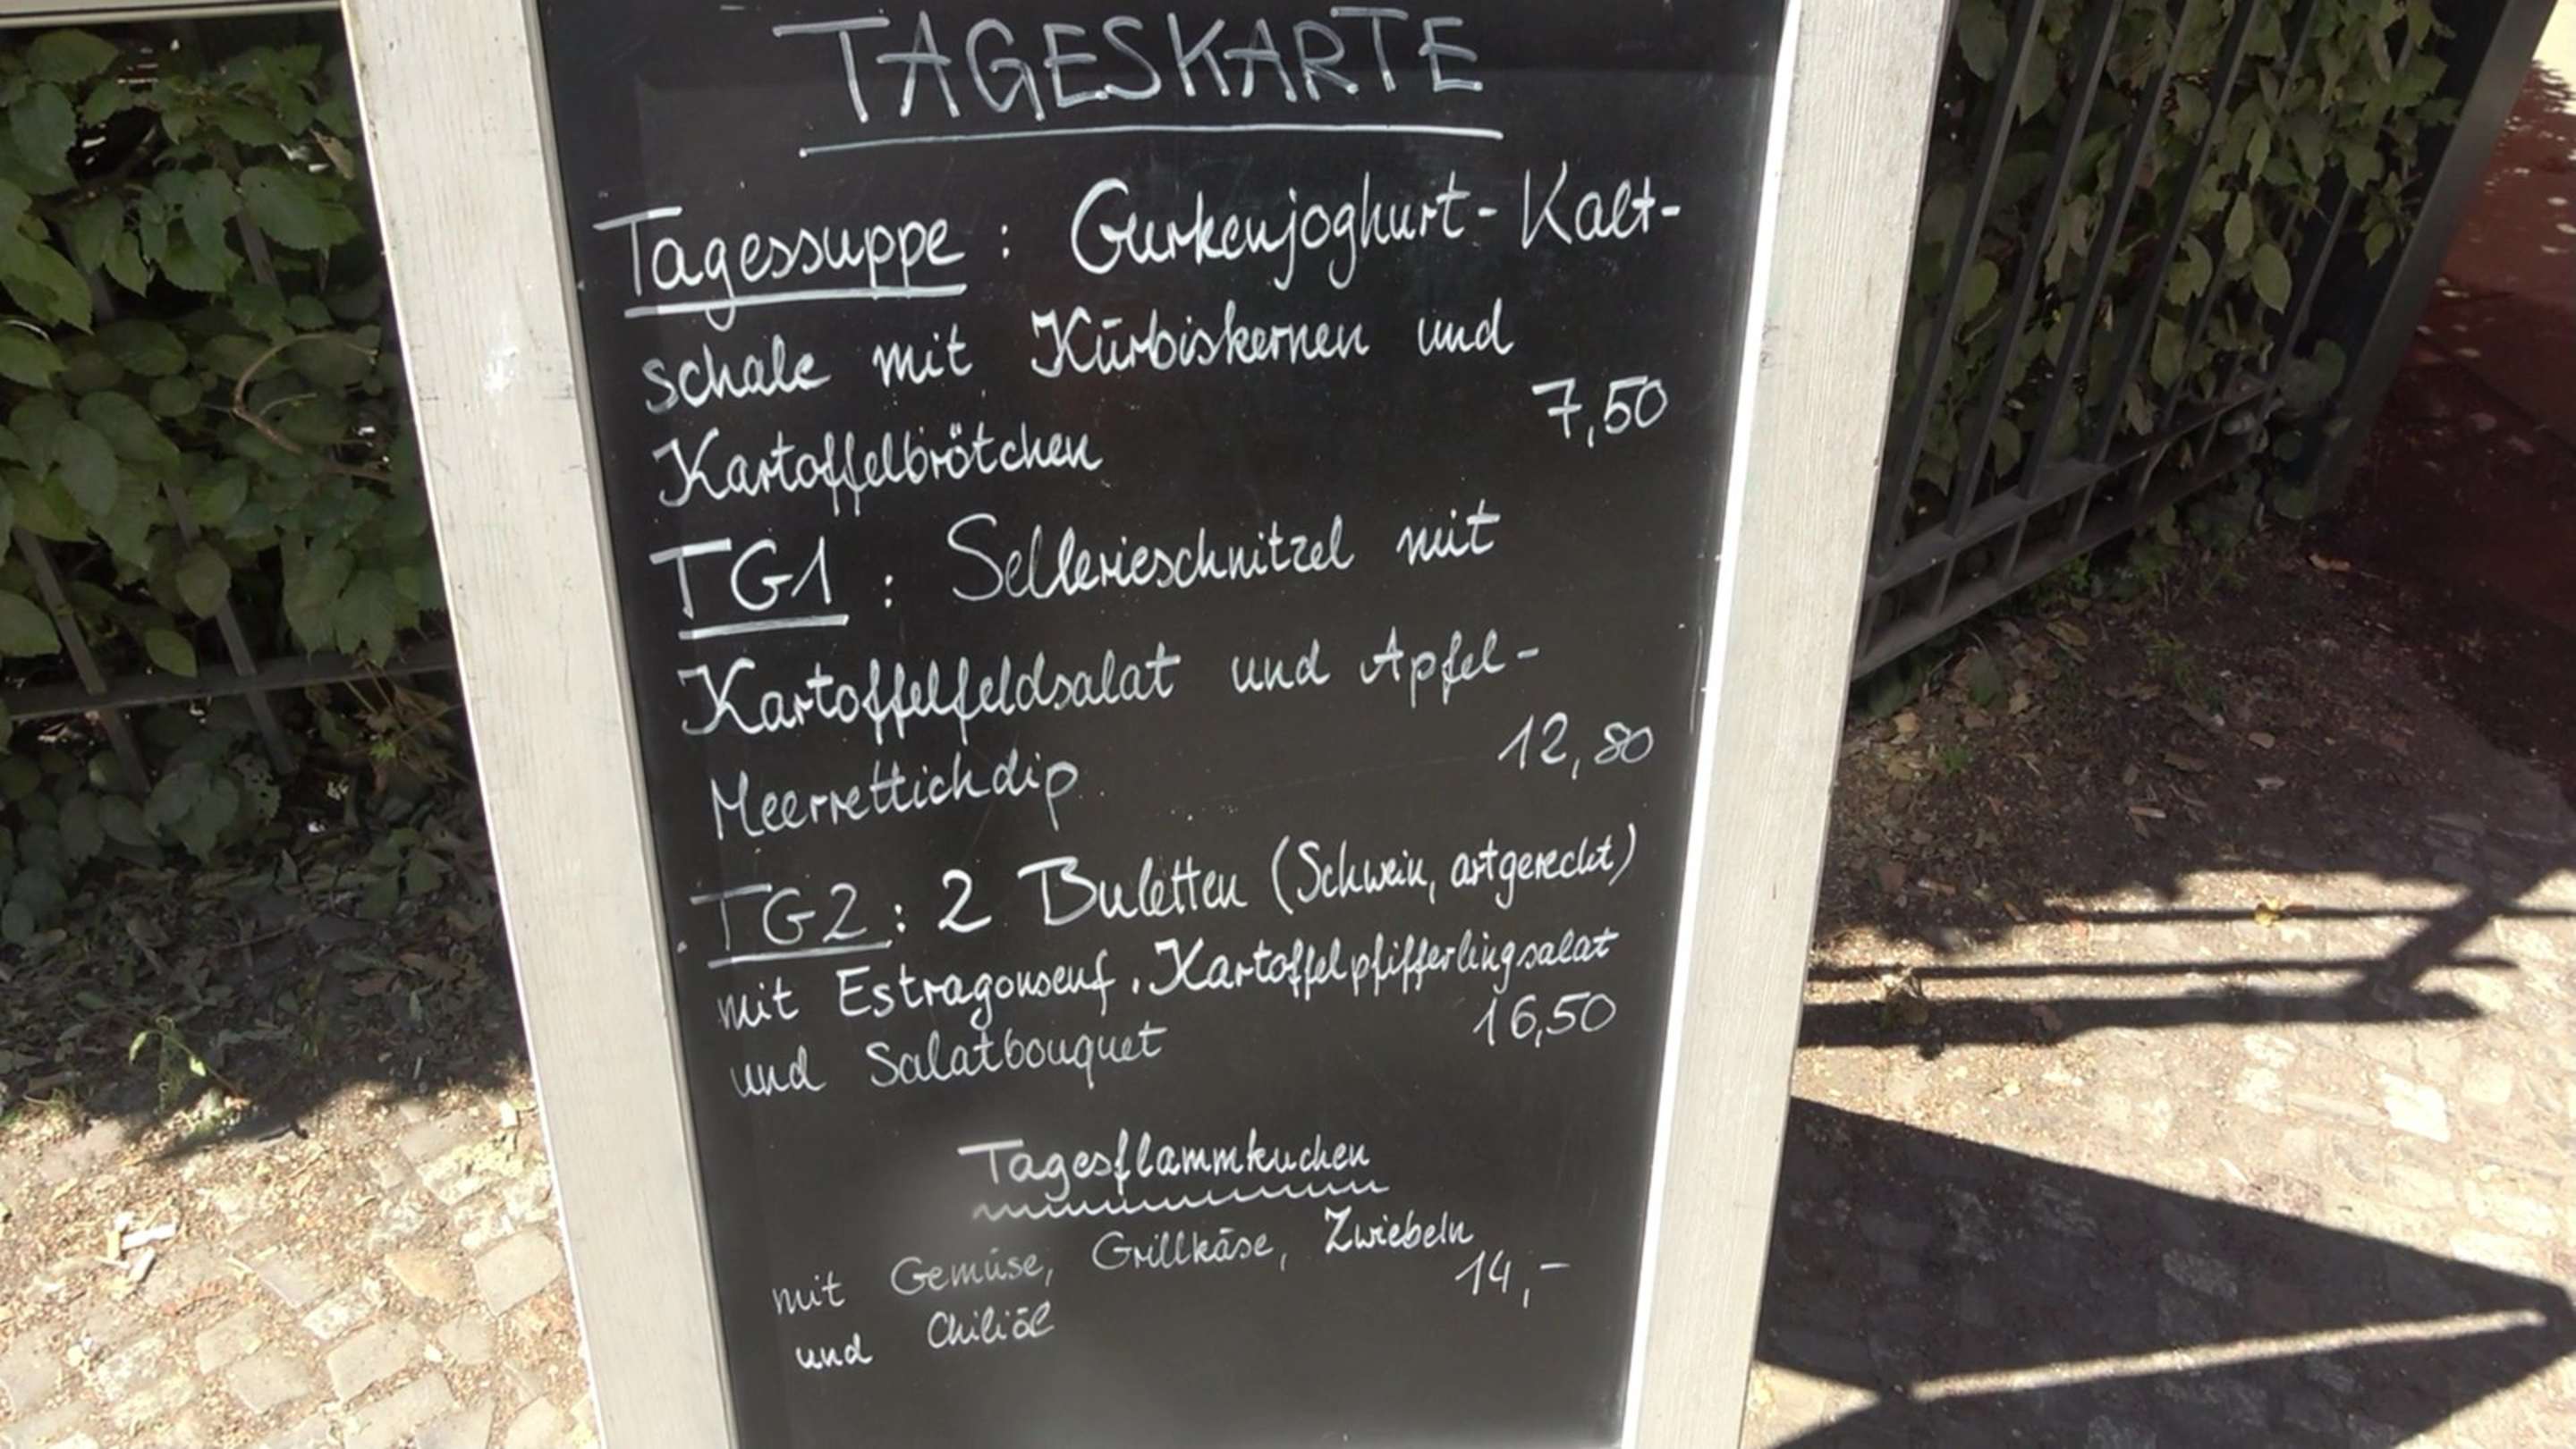 TAGESKARTE
Tagessuppe : Gurkenjoghurt-Kalt-
schale mit Kürbiskernen und
Kartoffelbrötchen 7,50
TG1 : Sellerieschnitzel mit
Kartoffelfeldsalat und Apfel-
Meerrettichdip 12,80
TG2 : 2 Buletten (Schwein, artgerecht)
mit Estragonsenf, Kartoffelpfifferlingsalat
und Salatbouquet 16,50
Tagesflammkuchen
mit Gemüse, Grillkäse, Zwiebeln
und Chiliöl 14,-